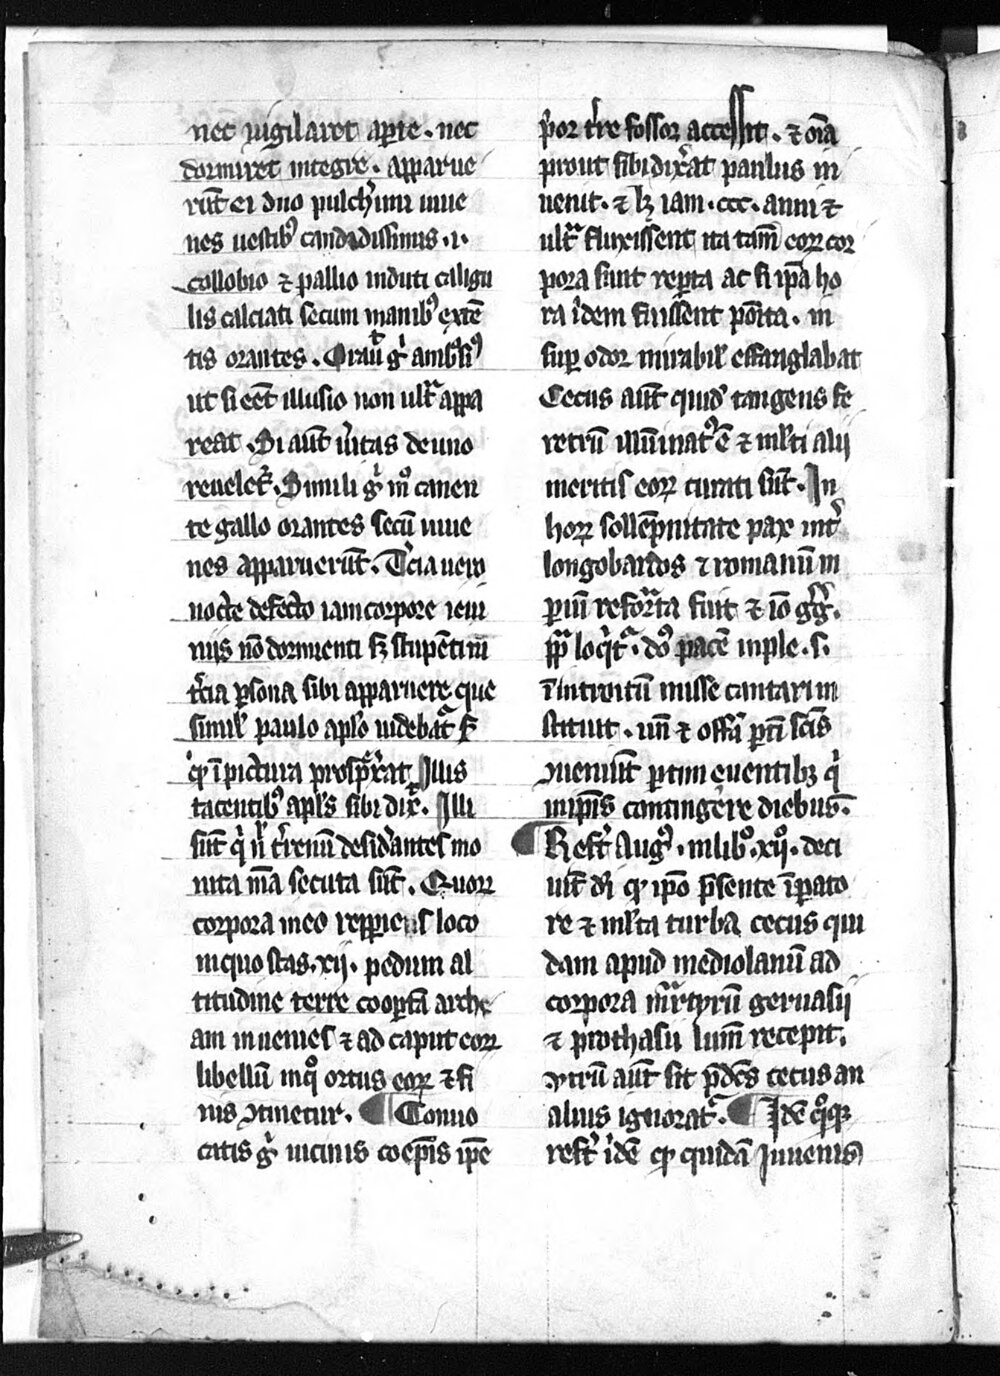 nec vigilaret aperte. nec
dormiret integre. apparue
rūt ei duo pulch̓imi iuue
nes uestibꝰ candidissimis .i.
collobio ⁊ pallio induti caligu
lis calciati secum manibꝰ extē
tis orantes. Orauͭ gͥ ambrosiꝰ
ut si eēt illusio non ultᷓ appa
reat. Si aūt ûitas de uno
reueletᷓ. Simili gͥ mͦ canen
te gallo orantes secū iuue
nes apparuerūt. Tͨcia uero
nocte defecto iam corpore ieiu
niis nō dormienti sꝫ stupēti cū
tͨcia ꝑsona sibi apparuere que
simil̓ paulo apl̓o uidebatᷓ
ꝙ ī pictura Illis
tacentibꝰ apl̓s sibi dix̓. Illi
sūt qͥ nͪ t̓renū desid̓antes mo
nita mēa secuta sūt. Quoꝝ
corpora in eo repperies loco
in quo stas. xij. pedum al
titudine terre coopertā arche
am inuenies ⁊ ad caput eoꝝ
libellū in qͦ ortus eoꝝ ⁊ fi
nis ꝯtinetur. ¶ Conuo
catis gͥ uicinis coep̄is ip̄e
p̓or t̓re fossor accessit. ⁊ oīa
prout sibi dix̓at paulus in
uenit. ⁊ lꝫ iam .ccc. anni ⁊
ultᷓ fluxissent ita tam̄ eoꝝ cor
pora sunt rep̱ta ac si ip̄a ho
ra īdem fuissent po̓ita. in
suꝑ odor mirabil̓ effraglabat
Cecus aūt quidā tangens fe
retrū illūinatꝰ ē ⁊ ml̓ti alii
meritis eoꝝ curati sūt. In
hoꝝ sollēpnitate pax int̓
longobardos ⁊ romanū im
ꝑiū reformᷓta fuit ⁊ iō gͥgͥ.
pp̄ loqͥtᷓ. dōs pacē inple. s̓.
ī introitū misse cantari in
stituit. un̄ ⁊ offm̄ ꝑtī sc̄is
ꝯuenit ꝑtim euentibꝫ qͥ
in ip̄is contingere diebus.
¶ Refert̓ Augꝰ. in libͦ. xxͦ. de ci
uīt di̓ ꝙ ip̄o p̄sente īꝑato
re ⁊ ml̓ta turba cecus qui
dam apud mediolanū ad
corpora mͬtyrū geruasij
⁊ prothasii lum̄ recepit.
Vtrū aūt sit p̄dc̄s cecus an
alius ignoratᷓ. ¶ Idē qͦꝗꝫ
refert̓ īdē ꝙ quidā Iuuenis